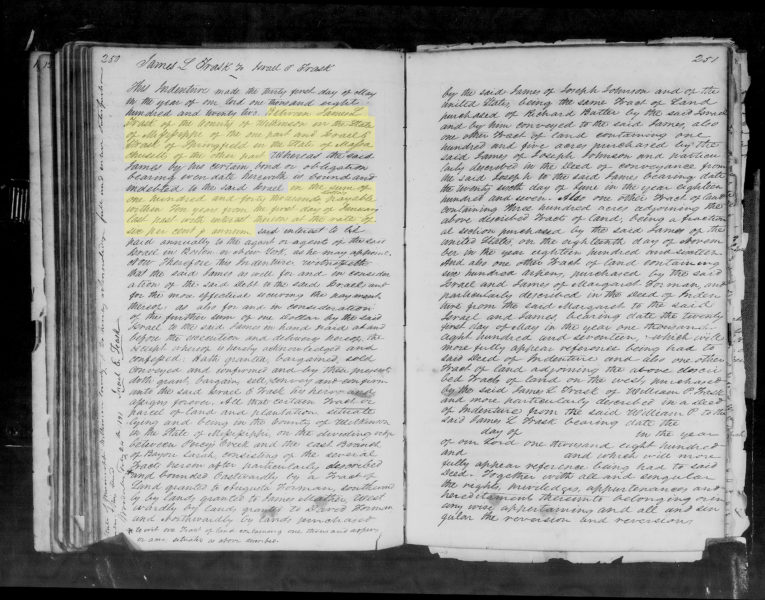 250
James L Trask To Israel E Trask
This Indenture made the thirty first day of May
in the year of our Lord one thousand eight
hundred and twenty two Between James L
Trask of the County of Wilkinson in the State
of Mississippi of the one part and Israel E
Trask of Springfield in the State of Massa
chusetts of the other part Whereas the said
James by his certain bond or obligation
bearing even date herewith is bound and
indebted to the said Israel in the sum of
one hundred and forty thousand dollars payable
within Ten years from the first day of January
last past with interest thereon at the rate of
six per cent p annum said interest to be
paid annually to the agent or agents of the said
Israel in Boston or New York as he may appoint
Now Therefore this Indenture witnesseth
that the said James as well for and in consider
ation of the said Debt to the said Israel and
for the more effectual securing the payment
thereof as also for and in consideration
of the further sum of one Dollar by the said
Israel to the said James in hand paid at and
before the execution and delivery hereof, the
receipt whereof is hereby acknowledged and
confessed. Hath granted, bargained, sold
conveyed and confirmed and by these presents
doth grant, bargain sell, convey and confirm
unto the said Israel E Trask his heirs and
assigns forever. All that certain Tract or
parcel of land and plantation situate
lying and being in the County of Wilkinson
in the State of Mississippi, on the dividing ridge
between Percys Creek and the east branch
of Bayou Sarah, consisting of the several
Tracts herein after particularly described
and bounded Eastwardly by a Tract of
land granted to Augusta Forman, southward
ly by lands granted to James Mather, West
wardly by lands granted to David Forman
and Northwardly by lands purchased
to wit one Tract of land containing one thousand arpens
or acres situated as above described.
251
by the said James of Joseph Johnson and of the
United States, being the same Tract of Land
purchased of Richard Butler by the said Israel
and by him conveyed to the said James, also
one other Tract of land containing one
hundred and five acres purchased by the
said James of Joseph Johnson and particu
larly described in the Deed of conveyance from
the said Joseph to the said James bearing date
the twenty sixth day of June in the year eighteen
hundred and seven. Also one other Tract of land
containing three hundred acres adjoining the
above described Tract of land, being a fraction
al section purchased by the said James of the
United States, on the eighteenth day of Novem
ber in the year eighteen hundred and sixteen
And also one other Tract of land containing
six hundred Arpens, purchased by the said
Israel and James of Margaret Forman, and
particularly described in the Deed of Inden
ture from the said Margaret to the said
Israel and James, bearing date the twenty
first day of May in the year one thousand
eight hundred and seventeen, which will
more fully appear reference being had to
said Deed of Indenture and also one other
Tract of land adjoining the above descri
bed Tracts of land on the west, purchased
by the said James L Trask of William P Trask
and more particularly described in a deed
of Indenture from the said William P. to the
said James L Trask bearing date the
day of in the year
of our Lord one thousand eight hundred
and and which will more
fully appear reference being had to said
Deed. Together with all and singular
the rights, priviledges, appurtenances and
hereditaments thereunto belonging or in
any wise appertaining and all and sin
gular the reversion and reversions